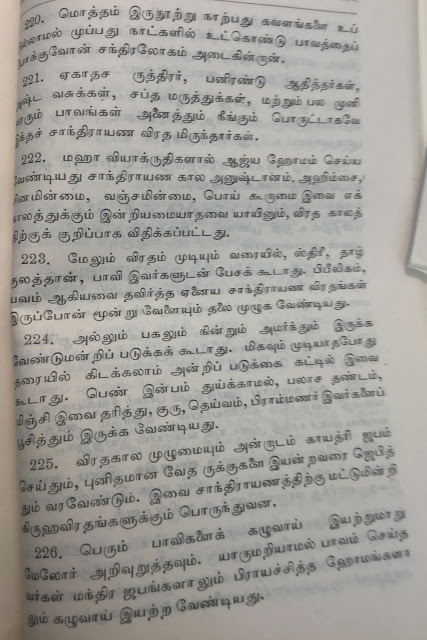 220. மொத்தம் இருநூற்று நாற்பது கவளங்களை உப்
பில்லாமல் முப்பது நாட்களில் உட்கொண்டு பாவத்தைப்
போக்குவோன் சந்திரலோகம் அடைகின்றான்.
221. ஏகாதச ருத்திரர், பனிரண்டு ஆதித்தர்கள்,
அஷ்ட வசுக்கள், சப்த மருத்துக்கள், மற்றும் பல முனி
வரும் பாவங்கள் அனைத்தும் நீங்கும் பொருட்டாகவே
இந்தச் சாந்திராயண விரத மிருந்தார்கள்.
222. மஹா வியாக்ருதிகளால் ஆஜ்ய ஹோமம் செய்ய
வேண்டியது சாந்திராயண கால அனுஷ்டானம். அஹிம்சை,
சினமின்மை, வஞ்சமின்மை, பொய் கூறாமை இவை எக்
காலத்துக்கும் இன்றியமையாதவை யாயினும், விரத காலத்
திற்குக் குறிப்பாக விதிக்கப்பட்டது.
223. மேலும் விரதம் முடியும் வரையில், ஸ்திரீ, தாழ்
குலத்தான், பாவி இவர்களுடன் பேசக் கூடாது. பிபீலிகம்,
யவம் ஆகியவை தவிர்த்த ஏனைய சாந்திராயண விரதங்கள்
இருப்போன் மூன்று வேளையும் தலை முழுக வேண்டியது.
224. அல்லும் பகலும் நின்றும் அமர்ந்தும் இருக்க
வேண்டுமன்றிப் படுக்கக் கூடாது. மிகவும் முடியாதபோது
தரையில் கிடக்கலாம் அன்றிப் படுக்கை கட்டில் இவை
கூடாது. பெண் இன்பம் துய்க்காமல், பலாச தண்டம்,
மிஞ்சி இவை தரித்து, குரு, தெய்வம், பிராம்மணர் இவர்களைப்
பூசித்தும் இருக்க வேண்டியது.
225. விரதகால முழுமையும் அன்றாடம் காயத்ரி ஜபம்
செய்தும், புனிதமான வேத ருக்குகளை இயன்றவரை ஜெபித்
தும் வரவேண்டும். இவை சாந்திராயணத்திற்கு மட்டுமின்றி
கிருஹவிரதங்களுக்கும் பொருந்துவன.
226. பெரும் பாவிகளைக் கழுவாய் இயற்றுமாறு
மேலோர் அறிவுறுத்தவும். யாருமறியாமல் பாவம் செய்த
வர்கள் மந்திர ஜபங்களாலும் பிராயச்சித்த ஹோமங்களா
லும் கழுவாய் இயற்ற வேண்டியது.